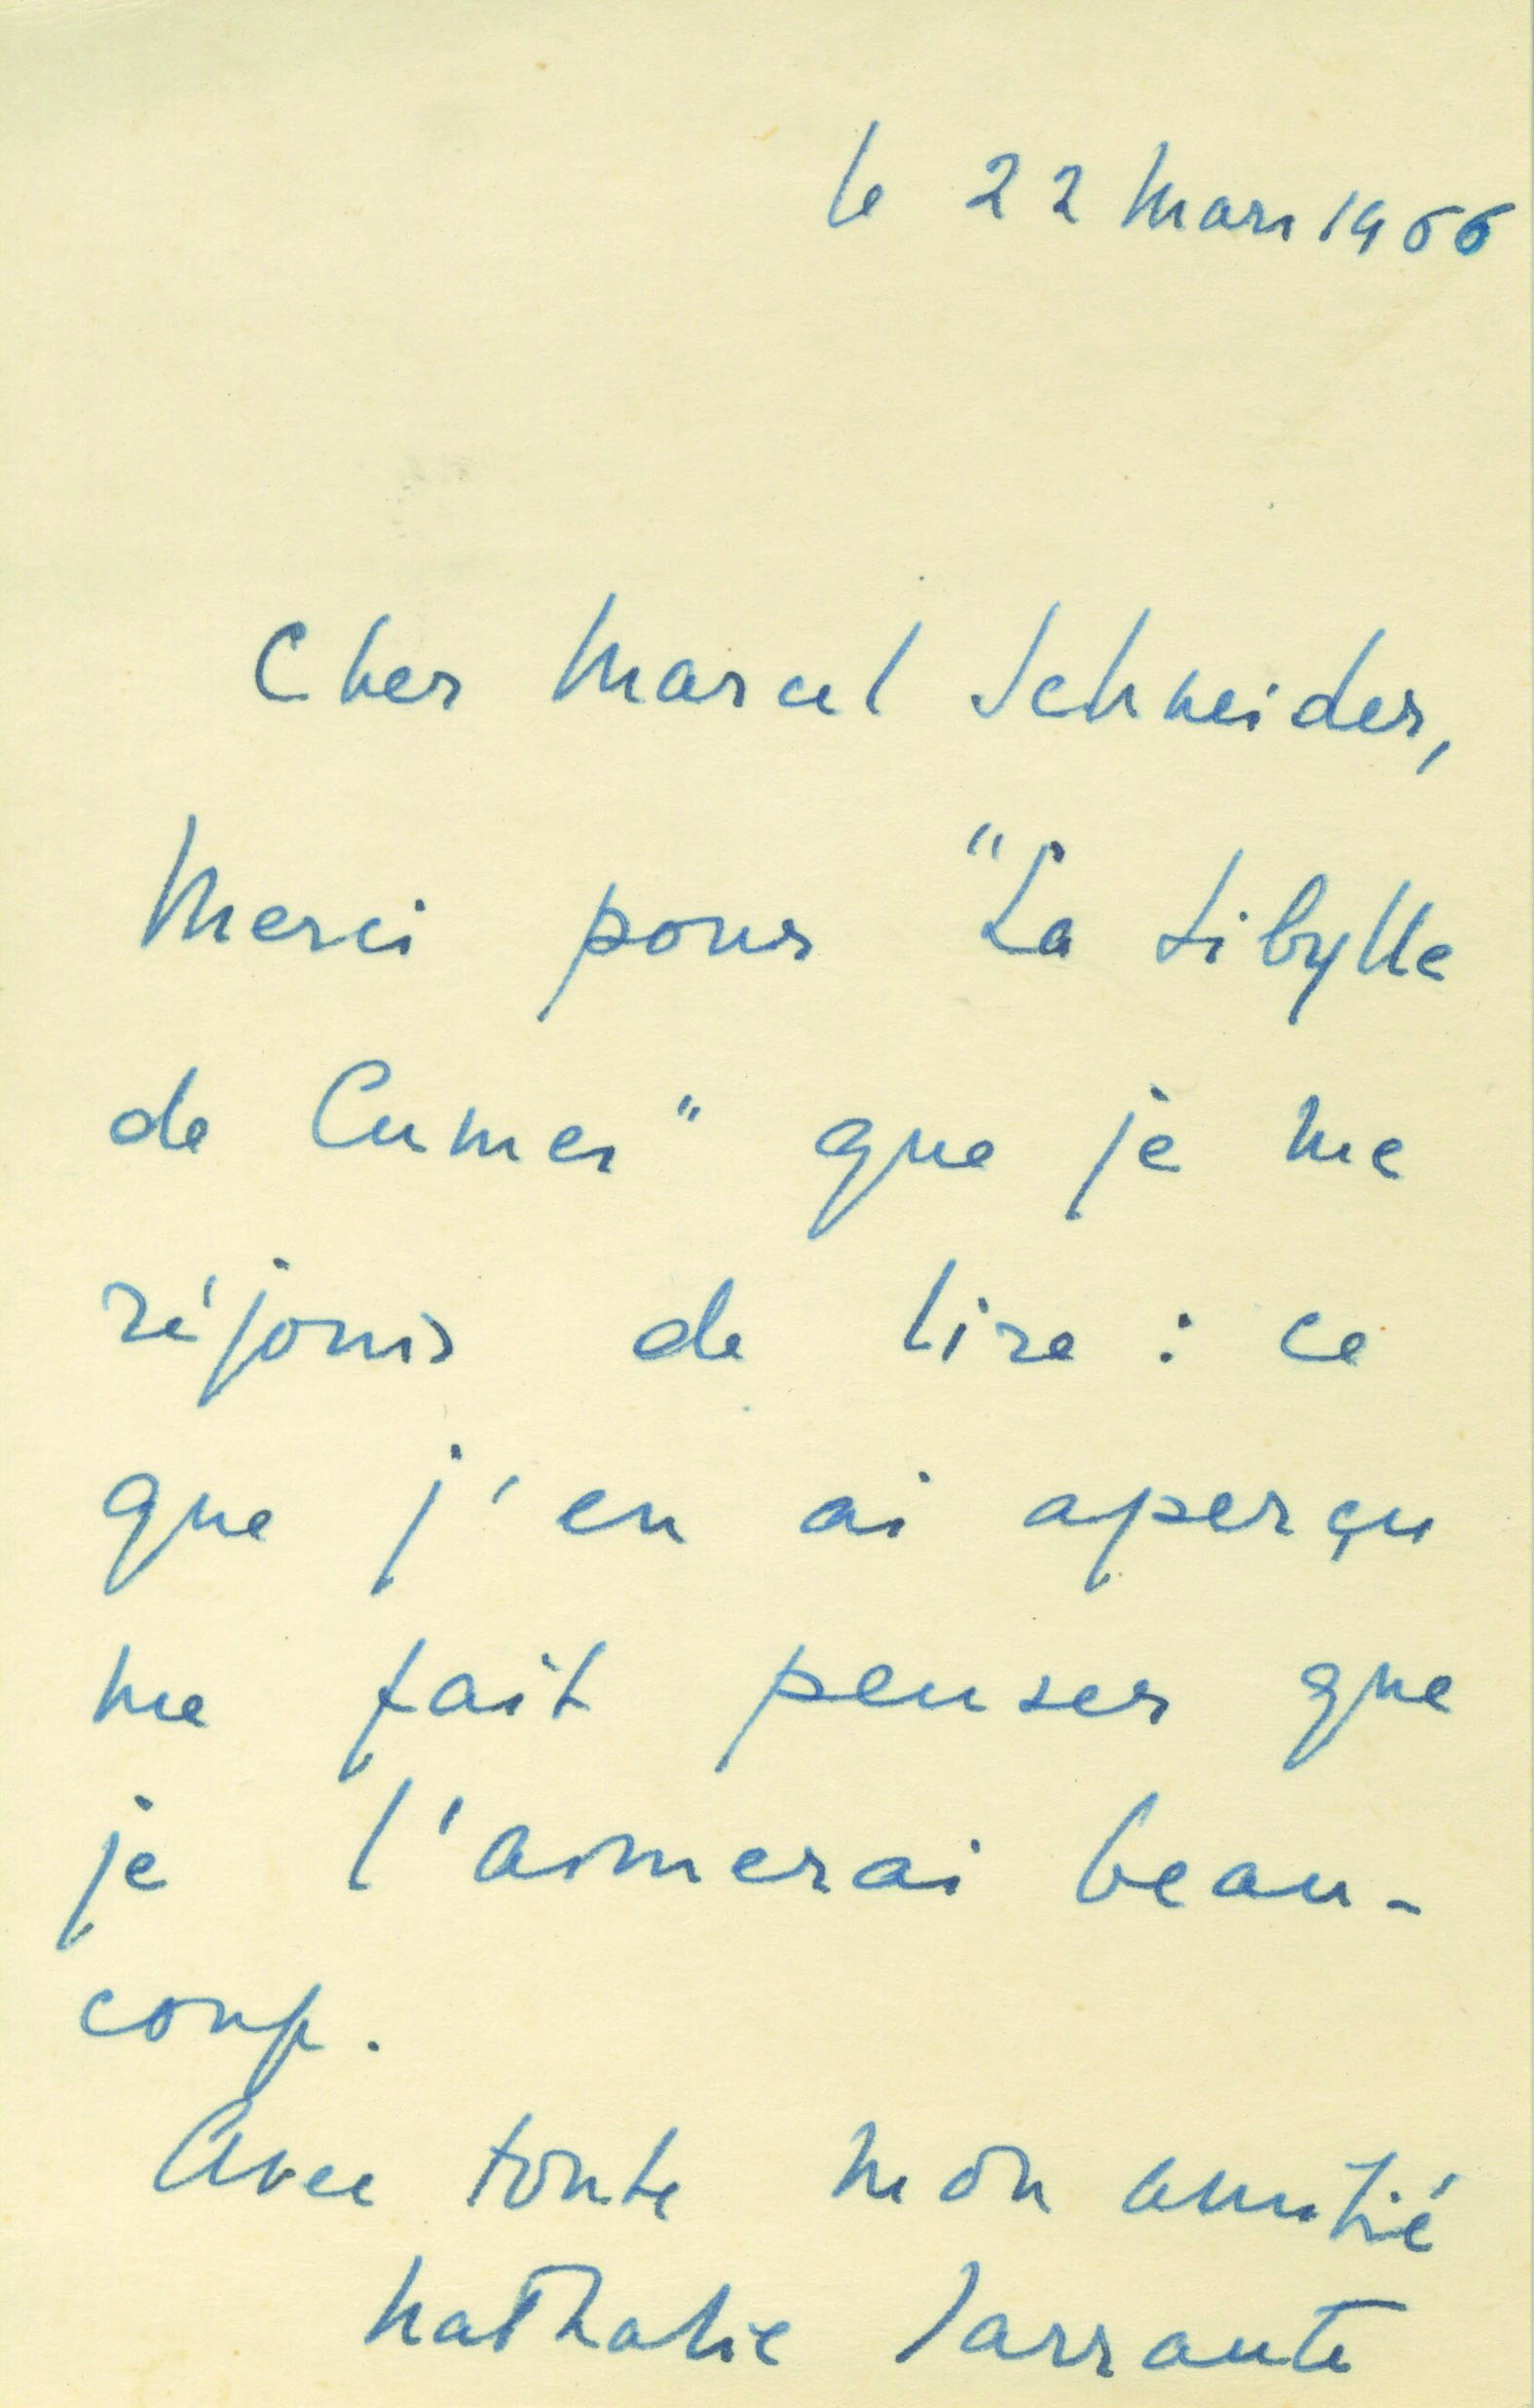 le 22 Mars 1966
Cher Marcel Schneider,
Merci pour "La Sibylle
de Cumes" que je me
réjouis de lire : ce
que j'en ai aperçu
me fait penser que
je l'aimerai beau-
coup.
Avec toute mon amitié
Nathalie Sarraute